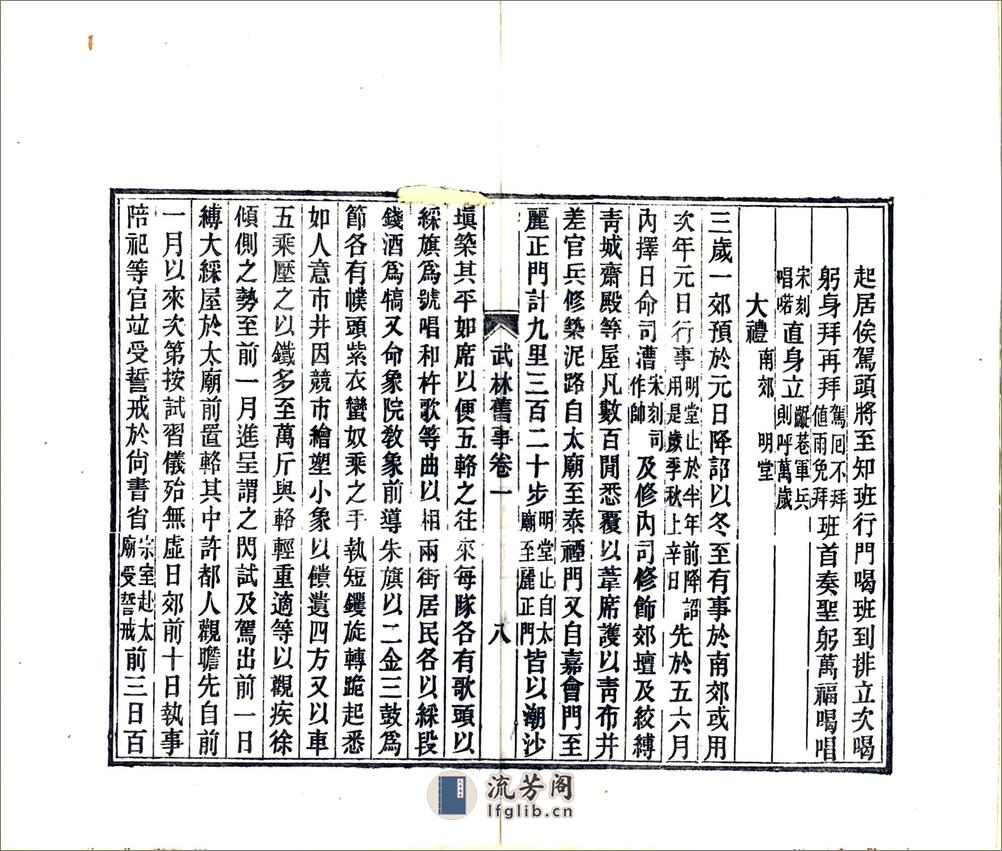 起居俟駕頭將至知班行門喝班到排立次喝
躬身拜再拜駕回不拜值雨免拜班首奏聖躬萬福喝唱
宋刻唱喏直身立龊巷軍兵則呼萬歲
大禮南郊 明堂
三歲一郊預於元日降詔以冬至有事於南郊或用
次年元日行事明堂止於半年前降詔用是歲季秋上辛日先於五六月
內擇日命司漕宋刻司作帥及修內司修飾郊壇及絞縛
青城齋殿等屋凡數百閒悉覆以葦席護以青布并
差官兵修築泥路自太廟至泰禋門又自嘉會門至
麗正門計九里三百二十步明堂止自太廟至麗正門皆以潮沙
武林舊事卷一 八
塡築其平如席以便五輅之往來每隊各有歌頭以
綵旗爲號唱和杵歌等曲以相兩街居民各以綵段
錢酒爲犒又命象院敎象前導朱旗以二金三鼓爲
節各有幞頭紫衣蠻奴乘之手執短钁旋轉跪起悉
如人意市井因競市繪塑小象以饋遺四方又以車
五乘壓之以鐵多至萬斤與輅輕重適等以觀疾徐
傾側之勢至前一月進呈謂之閃試及駕出前一日
縛大綵屋於太廟前置輅其中許都人觀瞻先自前
一月以來次第按試習儀殆無虛日郊前十日執事
陪祀等官竝受誓戒於尚書省宗室赴太廟受誓戒前三日百
流芳阁
lfglib.cn